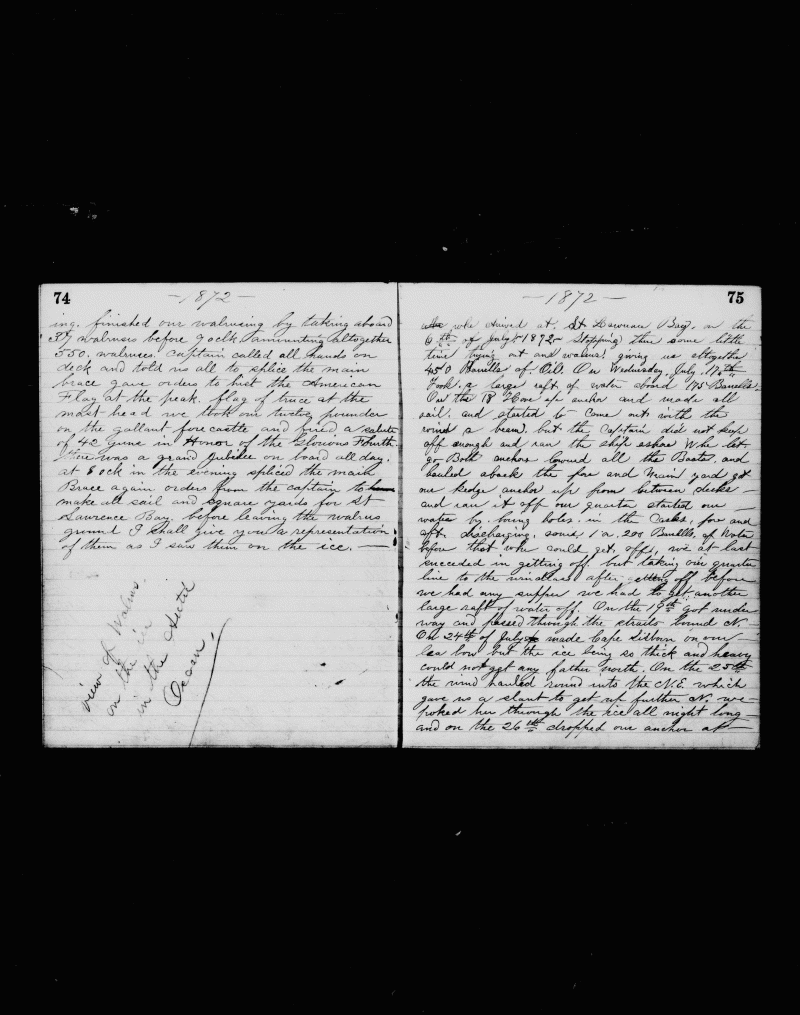 74
-1872-
ing. finished our walrusing by taking aboard
37 walruses before 9 ock amounting altogether
550. walruses. captain called all hands on
deck and told us all to splice the main
brace gave orders to hist the American
Flag at the peak. flag of truce at the
mast head we took our twelve pounder
on the gallant forecastle and fired a salute
of 42 guns in Honor of the Glorious Fourth.
there was a grand jubilee on board all day.
at 8 ock in the evening spliced the main
Brace again orders from the captain to
make all sail and square yards for St
Lawrence Bay. before leaving the walrus
ground I shall give you a representation
of them as I saw them on the ice. —
view of Walrus.
on the ice
in the Arctic
Ocean.
75
-1872-
whe arived at. St Lawrence Bay. on the
6th of July 1872 Stopping there some little
time trying out and walrus giving us altogether
450 Barrells of Oil. On Wednesday. July. 17th
Took. a large raft. of water aboard 175 Barrells.
On the 18 Hove up anchor and made all
sail. and started to come out with the
wind a beam. but the Captain did not keep
off enough and ran the ship ashore Whe let
go Both anchors lowed all the Boats and
hauled aback the fore and main yard got
our kedge anchor up from between decks
and ran it off our quarter started our
water by. boring holes. in the Casks, fore and
aft. discharging. some, 1 or, 200 Bwells. of Water
before that whe could get. off, we at last
succeded in getting off. but taking our quarter
line to the windlass after off before
we had any supper we had to get another
large raft of water off. On the 19th got under
way and passed through the straits bound N.
On 24th of July made Cape Lisburn on our
lea bow but the ice being so thick and heavy
could not get any father north. On the 25th
the wind hauled round into the N.E. which
gave us a slant to get up further N. we
poked her through the ice all night long
and on the 26th dropped our anchor at